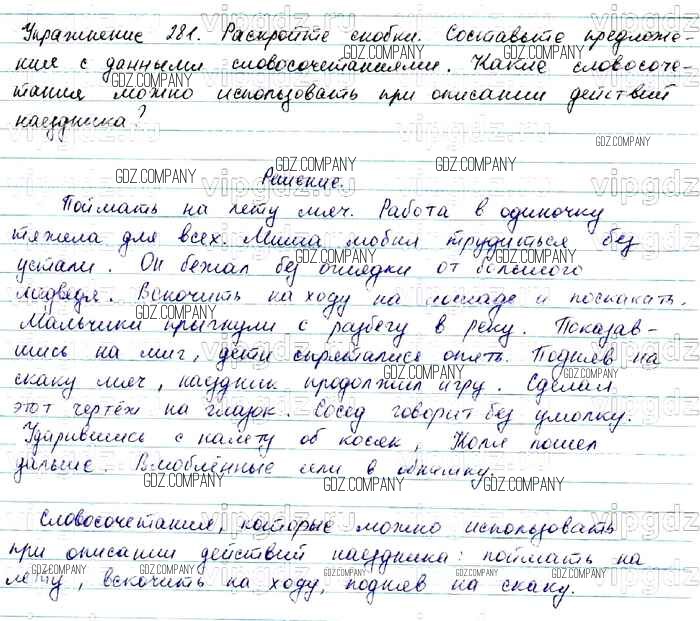 Упражнение 281. Раскройте скобки. Составьте предложе-
ния с данными словосочетаниями. Какие словосоче-
тания можно использовать при описании действий
наездника?
Решение.
Поймать на лету мяч. Работа в одиночку
тяжела для всех. Миша любил трудиться без
устали. Он бежал без оглядки от большого
медведя. Вскочить на ходу на лошадь и поскакать.
Мальчики прыгнули с разбегу в реку. Показав-
шись на миг, дети спрятались опять. Подняв на
скаку мяч, наездник продолжил игру. Сделал
этот чертёж на глазок. Сосед говорит без умолку.
Ударившись с налету об косяк, Коля пошел
дальше. Влюблённые шли в обнимку.
Словосочетания, которые можно использовать
при описании действий наездника: поймать на
лету, вскочить на ходу, подняв на скаку.